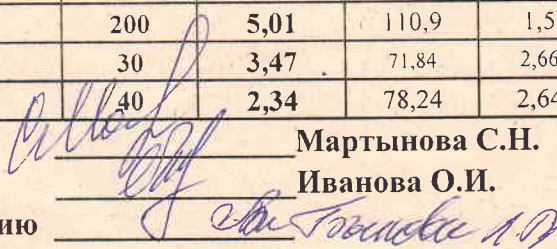 200 5,01 110,9 1,5
30 3,47 71,84 2,66
40 2,34 78,24 2,64
Мартынова С.Н.
Иванова О.И.
ию